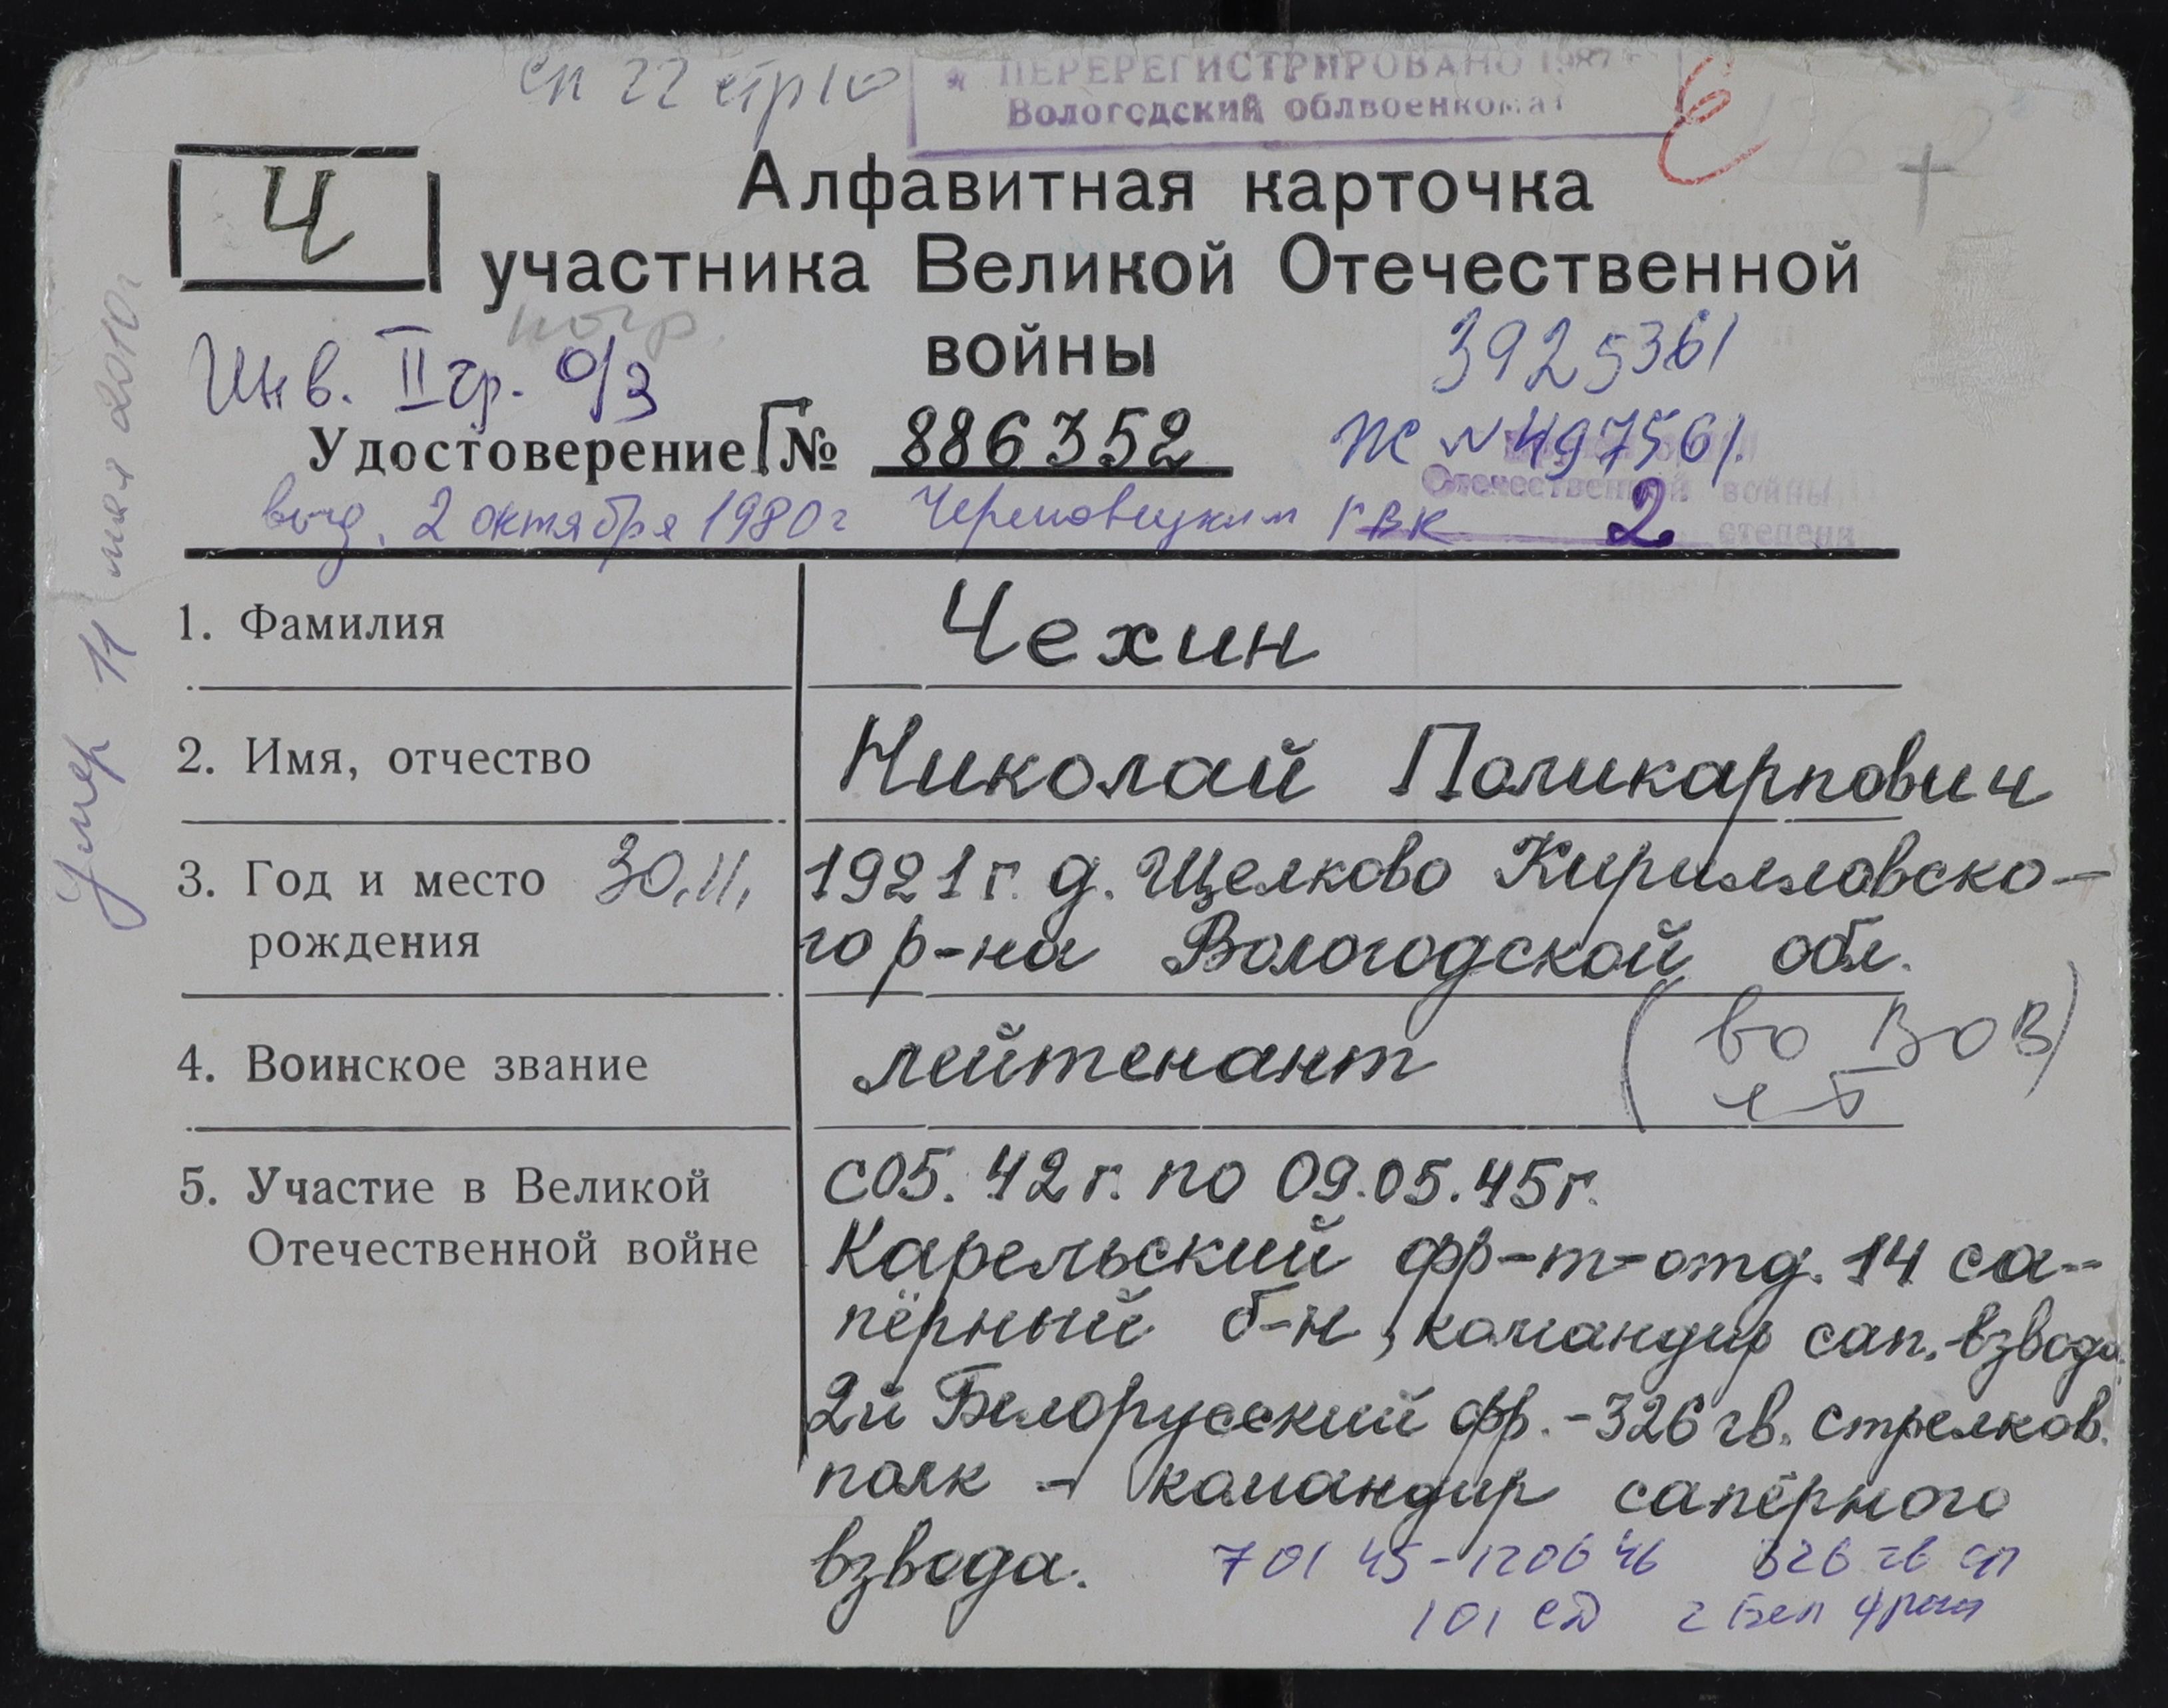 сп 22 стр 10
ПЕРЕРЕГИСТРИРОВАНО 1987 г
Вологодский облвоенкомат
Ч
Алфавитная карточка
участника Великой Отечественной
войны
Инв. II гр. о/з
3925361
Удостоверение Г № 886352
№ 497561.
Отечественной войны
2 степени
выд. 2 октября 1980 г Череповецким ГВК
Умер 11 мая 2010 г
1. Фамилия Чехин
2. Имя, отчество Николай Поликарпович
3. Год и место 30.11. 1921 г. д. Щелково Кирилловско-
рождения го р-на Вологодской обл.
4. Воинское звание лейтенант (во ВОВ)
5. Участие в Великой с 05.42 г. по 09.05.45 г.
Отечественной войне Карельский фр-т-отд. 14 са-
пёрный б-н, командир сап. взвода.
2й Белорусский фр.-326 гв. стрелков.
полк - командир сапёрного
взвода. 7 01 45-12 06 46 326 гв сп
101 СД 2 Бел фронт